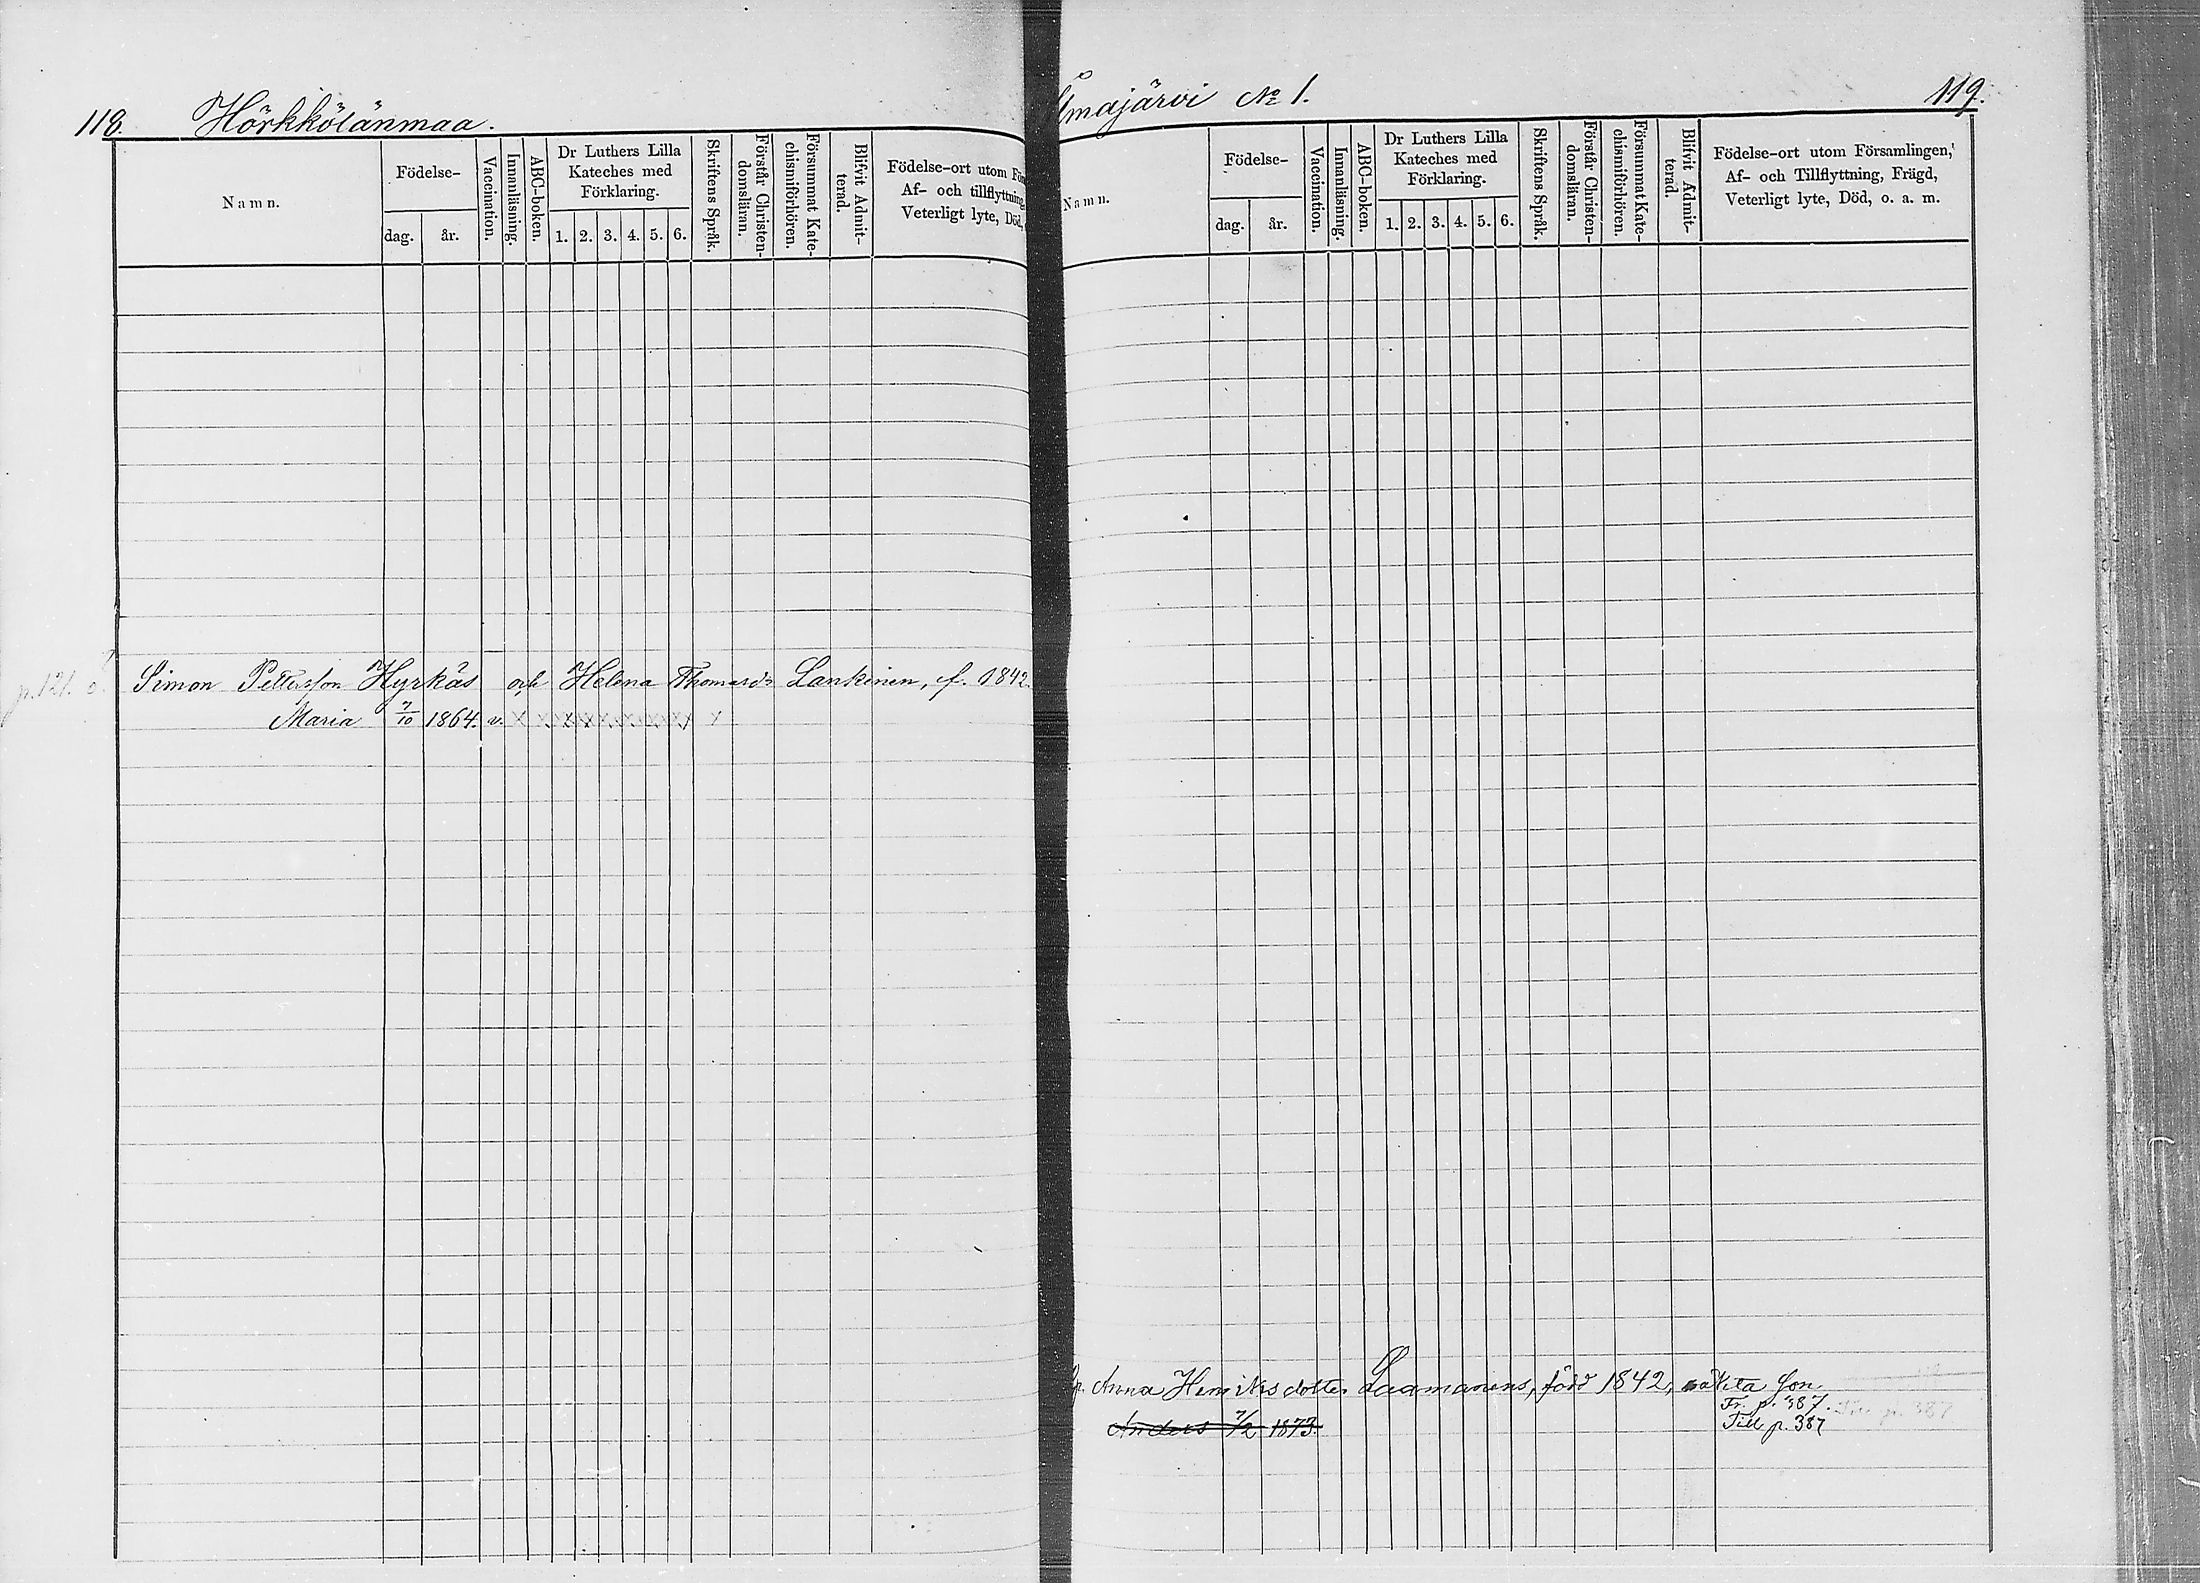 118. Hörkkölänmaa.
Namn.
Födelse-
dag.
år.
Vaccination.
Innanläsning.
ABC-boken.
Dr Luthers Lilla
Kateches med
Förklaring.
1. 2. 3. 4. 5. 6.
Skriftens Språk.
Förstår Christen-
domsläran.
Försummat Kate-
chismiförhören.
Blifvit Admit-
terad.
Födelse-ort utom
Af- och tillflyttning,
Veterligt lyte, Död,
p. 121.
Simon Pettersson Hyrkäs och Helena Thomasd:r Lankinen, f. 1842.
Maria 7/10 1864. v. x x x x x x x x x x
majärvi № 1. 119.
Namn.
Födelse-
dag.
år.
Vaccination.
Innanläsning.
ABC-boken.
Dr Luthers Lilla
Kateches med
Förklaring.
1. 2. 3. 4. 5. 6.
Skriftens Språk.
Förstår Christen-
domsläran.
Försummat Kate-
chismiförhören.
Blifvit Admit-
terad.
Födelse-ort utom Församlingen,
Af- och Tillflyttning, Frägd,
Veterligt lyte, Död, o. a. m.
Anna Henriksdotter Laamanens, född 1842, oäkta son.
Fr. p. 387.
Anders 7/2 1873.
Till p. 387